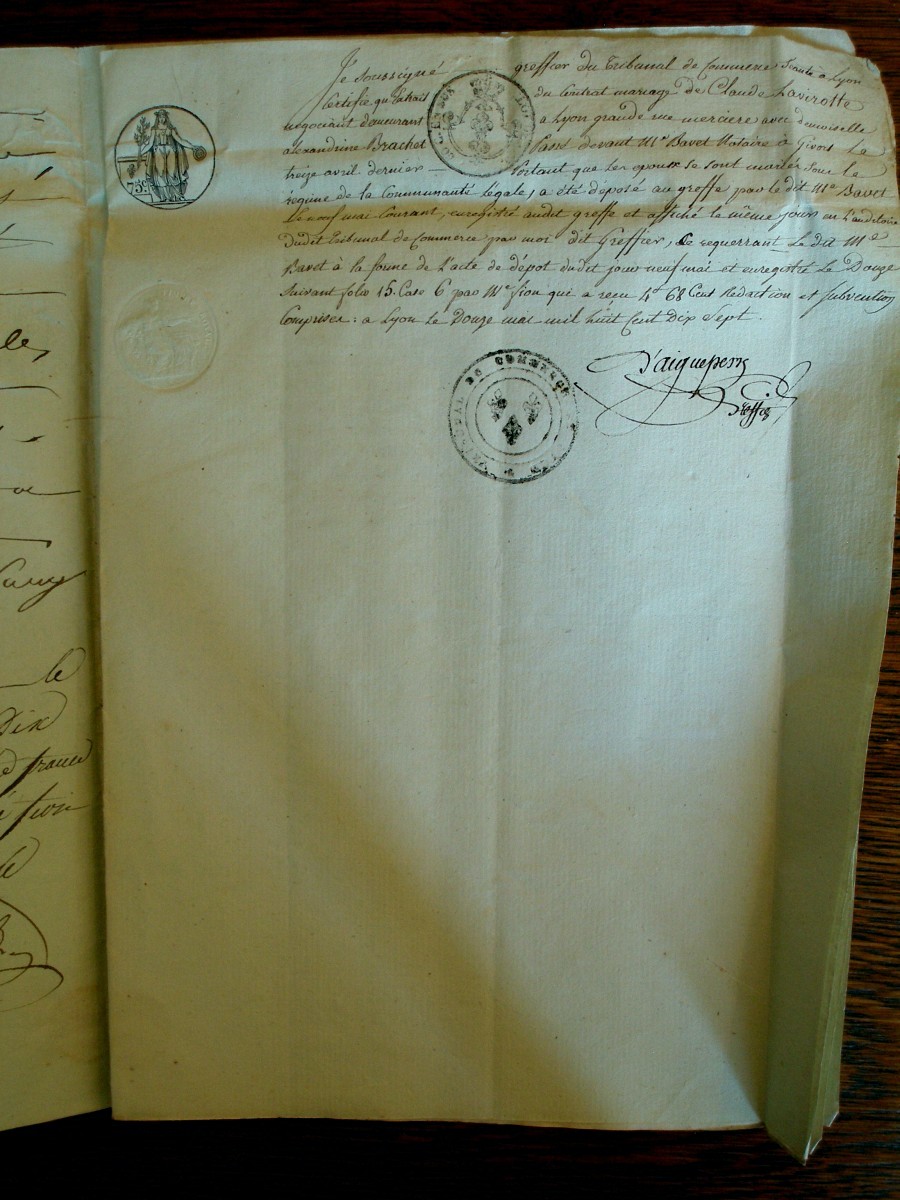 Je soussigné greffier du Tribunal de Commerce Séant à Lyon
Certifie qu'Extrait du Contrat mariage de Claude Lavirotte
négociant demeurant à Lyon grande rue merciere avec demoiselle
alexandrine Brachet Passé devant Me Bavet Notaire à Givors Le
treize avril dernier Portant que les époux se sont mariés sous le
régime de la Communauté légale, a été déposé au greffe par le dit Me Bavet
Le neuf mai Courant, enregistré audit greffe et affiché le même jour en L'auditoire
dudit Tribunal de Commerce par moi dit Greffier, Ce requerrant Le dit Me
Bavet à la forme de L'acte de dépôt dudit jour neuf mai et enregistré Le Douze
Suivant folio 15. Case 6 par Me Sion qui a reçu 4f 68 Cent Rédaction et Subvention
Comprises : a Lyon le Douze mai mil huit Cent Dix Sept.
D'aigueperse
Greffier
75c
TRIBUNAL DE COMMERCE
le
Dix
france
tion